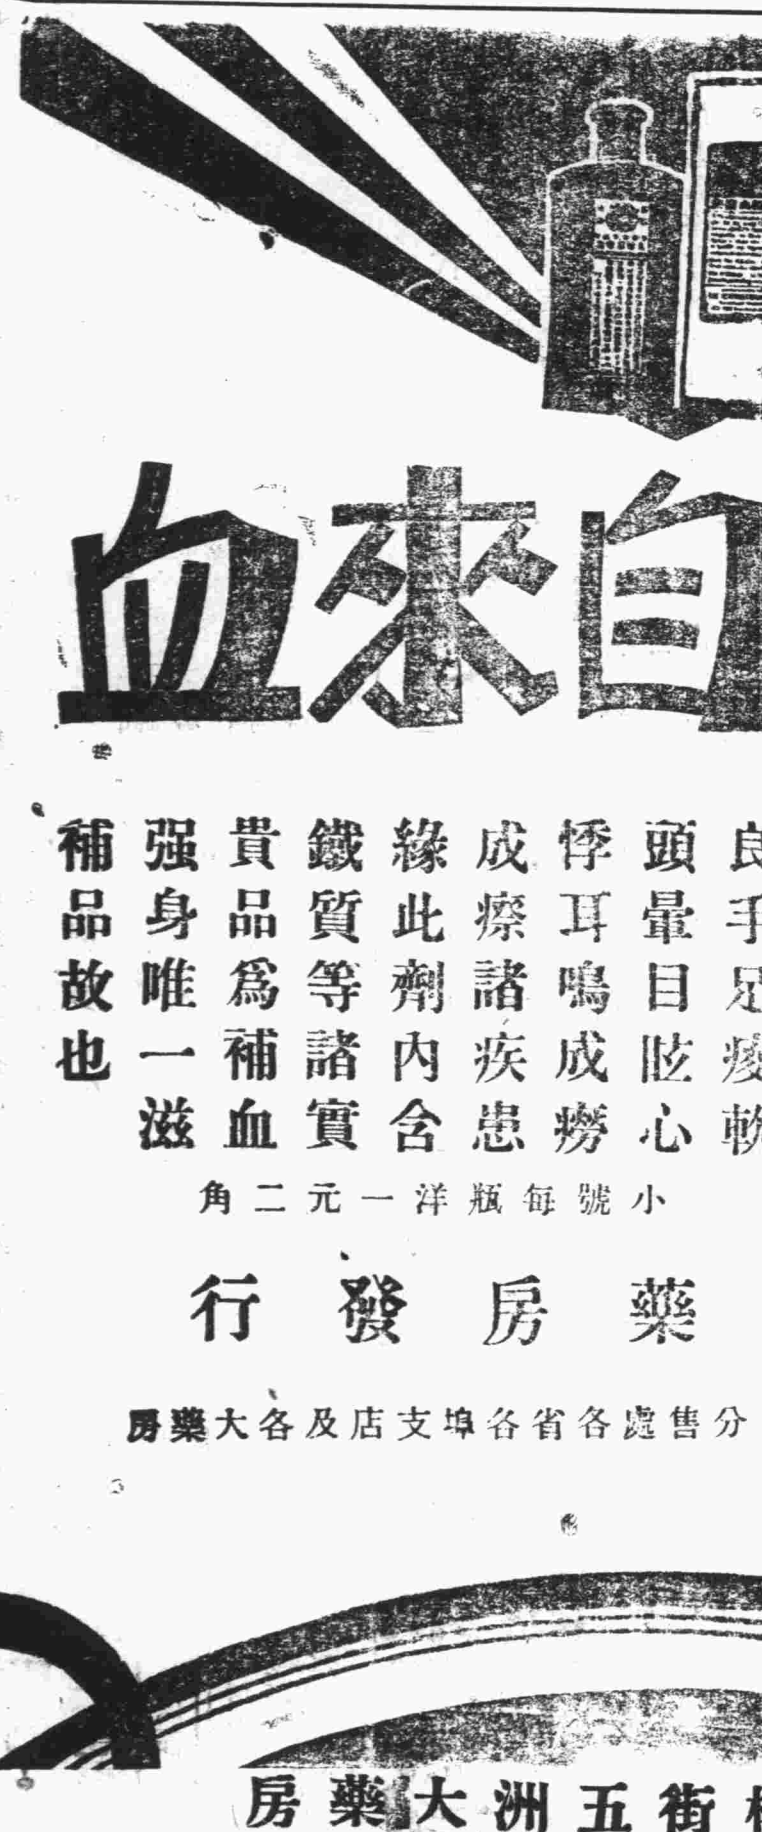 自來血
良手足痠軟
頭暈目眩心
悸耳鳴成癆
成瘵諸疾患
緣此劑內含
鐵質等諸實
貴品爲補血
强身唯一滋
補品故也
小號每瓶洋一元二角
藥房發行
分售處各省各埠支店及各大藥房
街五洲大藥房